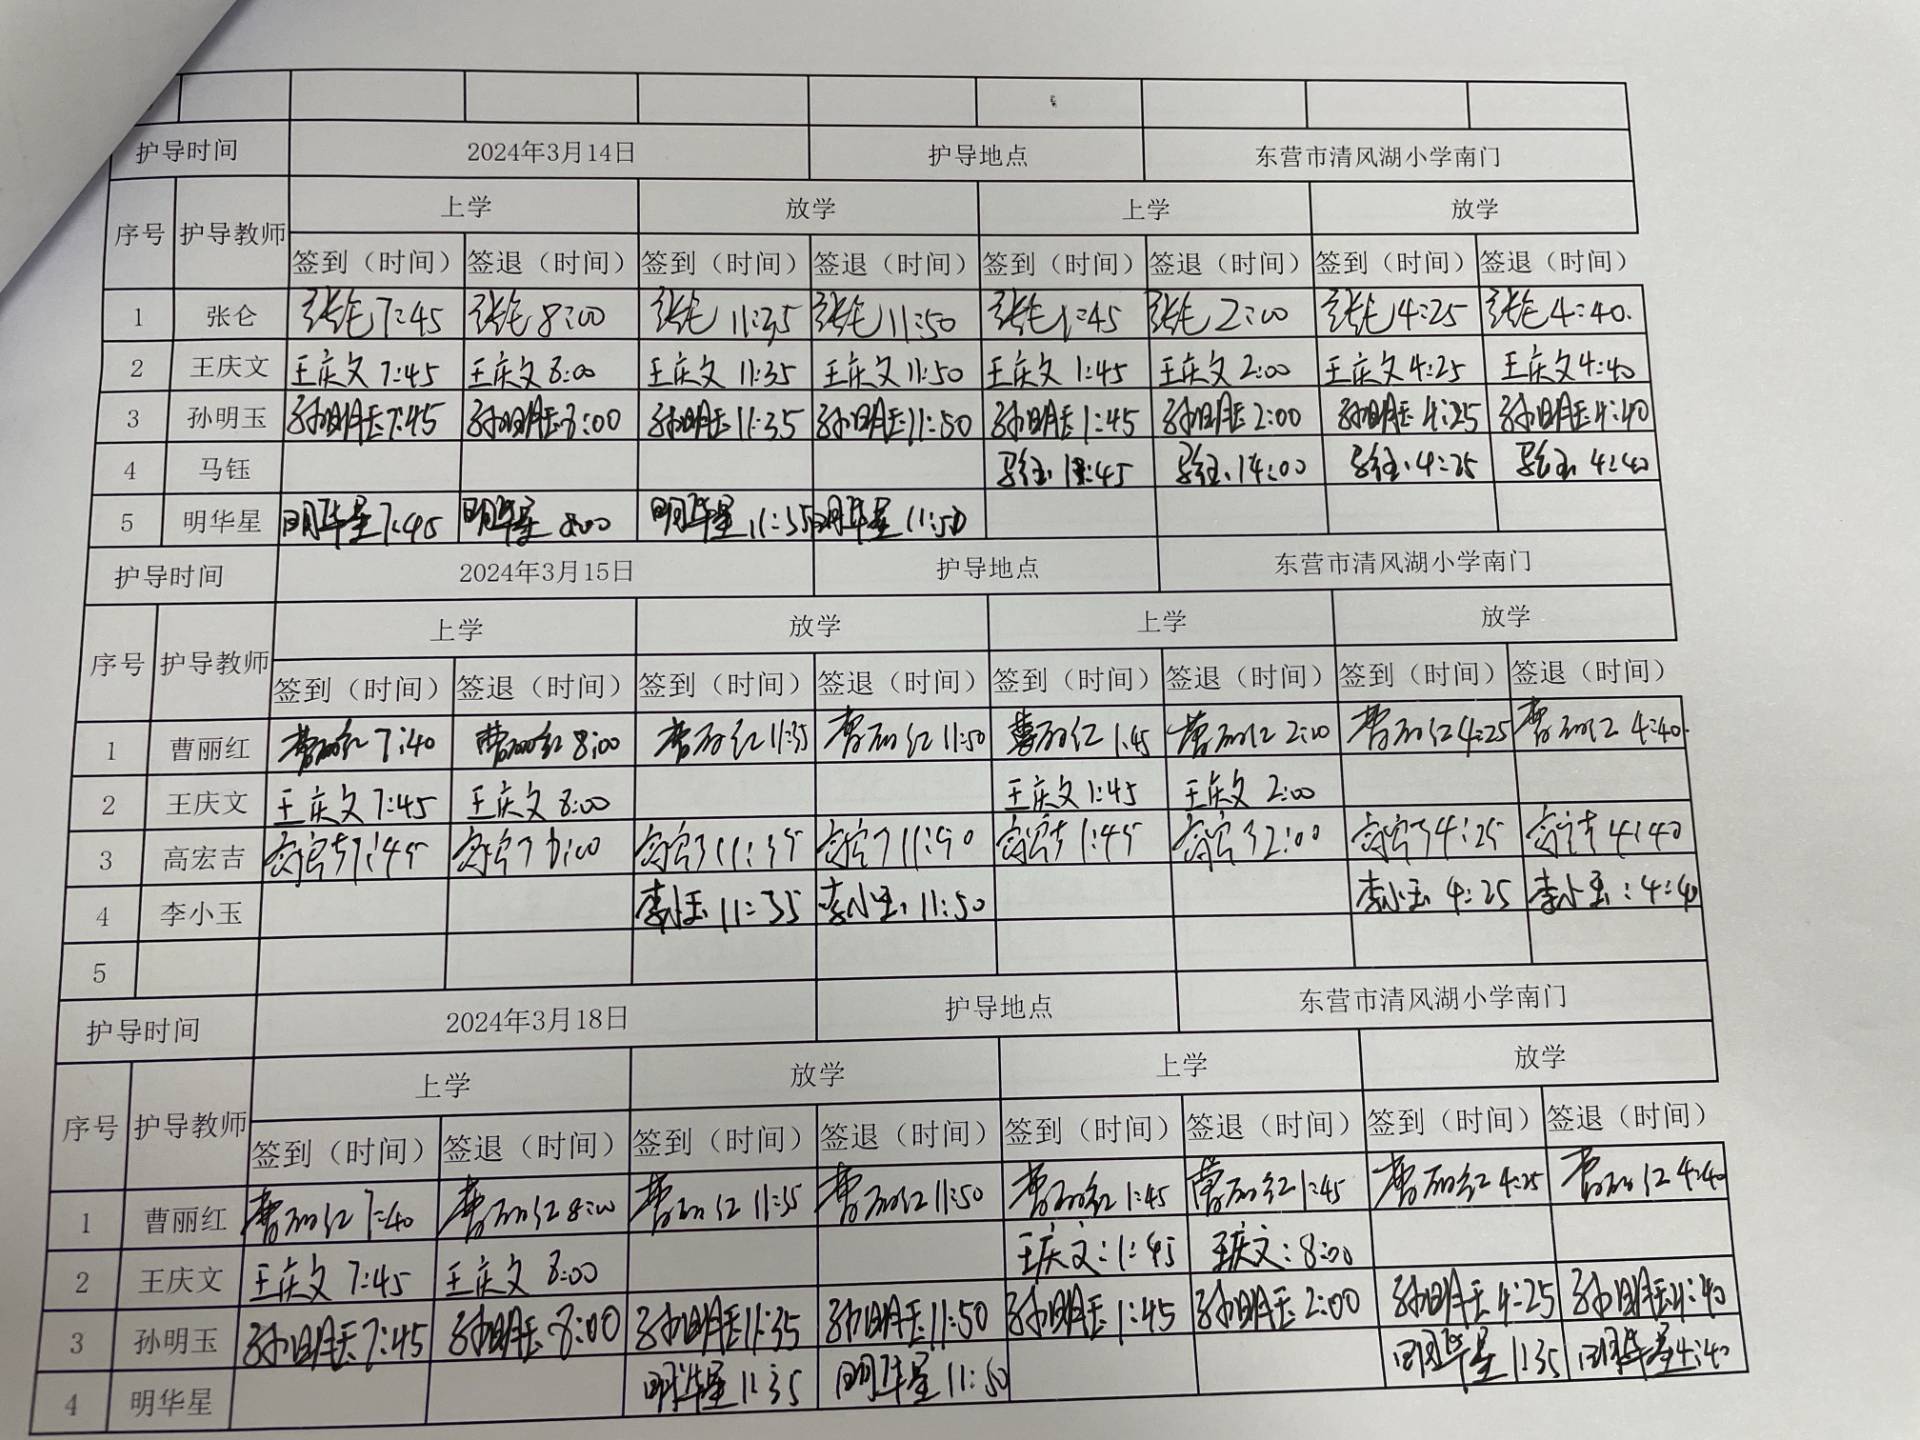 护导时间 2024年3月14日 护导地点 东营市清风湖小学南门
序号 护导教师 上学 放学 上学 放学
签到（时间） 签退（时间） 签到（时间） 签退（时间） 签到（时间） 签退（时间） 签到（时间） 签退（时间）
1 张仑 张仑 7:45 张仑 8:00 张仑 11:35 张仑 11:50 张仑 1:45 张仑 2:00 张仑 4:25 张仑 4:40.
2 王庆文 王庆文 7:45 王庆文 8:00 王庆文 11:35 王庆文 11:50 王庆文 1:45 王庆文 2:00 王庆文 4:25 王庆文 4:40
3 孙明玉 孙明玉 7:45 孙明玉 8:00 孙明玉 11:35 孙明玉 11:50 孙明玉 1:45 孙明玉 2:00 孙明玉 4:25 孙明玉 4:40
4 马钰 马钰 马钰 14:00 马钰 4:25 马钰 4:40
5 明华星 明华星 7:45 明华星 8:00 明华星 11:35 明华星 11:50
护导时间 2024年3月15日 护导地点 东营市清风湖小学南门
序号 护导教师 上学 放学 上学 放学
签到（时间） 签退（时间） 签到（时间） 签退（时间） 签到（时间） 签退（时间） 签到（时间） 签退（时间）
1 曹丽红 曹丽红 7:40 曹丽红 8:00 曹丽红 11:35 曹丽红 11:50 曹丽红 1:45 曹丽红 2:00 曹丽红 4:25 曹丽红 4:40.
2 王庆文 王庆文 7:45 王庆文 8:00 王庆文 1:45 王庆文 2:00
3 高宏吉 高宏吉 7:45 高宏吉 8:00 高宏吉 11:35 高宏吉 11:50 高宏吉 1:45 高宏吉 2:00 高宏吉 4:25 高宏吉 4:40
4 李小玉 李小玉 11:35 李小玉 11:50 李小玉 4:25 李小玉:4:40
5
护导时间 2024年3月18日 护导地点 东营市清风湖小学南门
序号 护导教师 上学 放学 上学 放学
签到（时间） 签退（时间） 签到（时间） 签退（时间） 签到（时间） 签退（时间） 签到（时间） 签退（时间）
1 曹丽红 曹丽红 7:40 曹丽红 8:00 曹丽红 11:35 曹丽红 11:50 曹丽红 1:45 曹丽红 1:45 曹丽红 4:25 曹丽红 4:40
2 王庆文 王庆文 7:45 王庆文 8:00 王庆文:1:45 王庆文:8:00
3 孙明玉 孙明玉 7:45 孙明玉 8:00 孙明玉 11:35 孙明玉 11:50 孙明玉 1:45 孙明玉 2:00 孙明玉 4:25 孙明玉 4:40
4 明华星 明华星 11:35 明华星 11:50 明华星 1:35 明华星 4:40